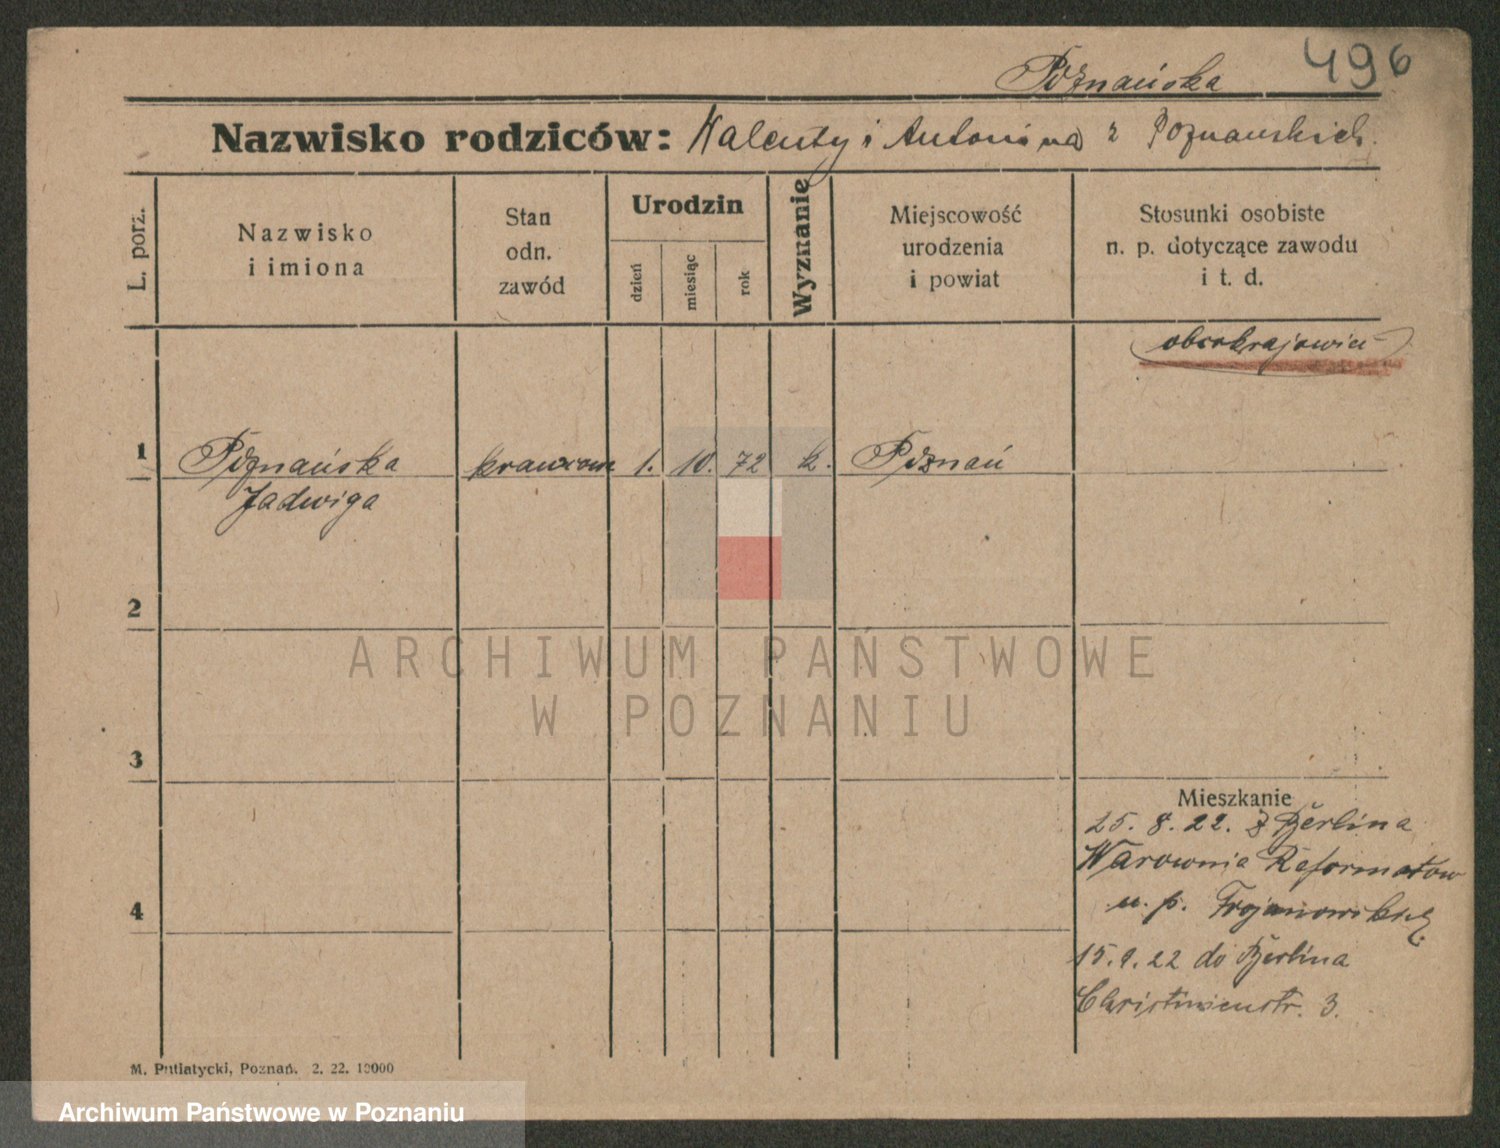 Poznańska 496
Nazwisko rodziców: Walenty i Antonina z Poznanskich.
L. porz.
Nazwisko
i imiona
Stan
odn.
zawód
Urodzin
dzień
miesiąc
rok
Wyznanie
Miejscowość
urodzenia
i powiat
Stosunki osobiste
n. p. dotyczące zawodu
i t. d.
obcokrajowiec
1 Poznańska 1. 10. 72 k. Poznań
Jadwiga
2
ARCHIWUM PAŃSTWOWE
W POZNANIU
3
Mieszkanie
25. 8. 22. z Berlina
Warownia Reformatow
4
u. p. Trojanowskiej
15. 9. 22 do Berlina
3.
M. Putiatycki, Poznań. 2. 22. 10000
Archiwum Państwowe w Poznaniu